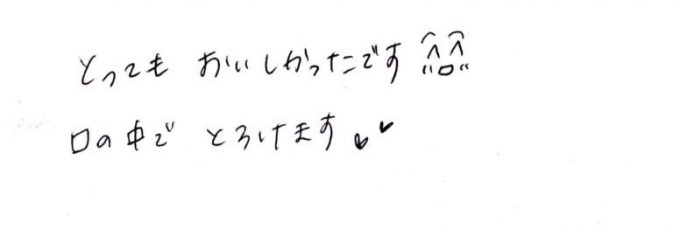 とっても おいしかったです
口の中で とろけます